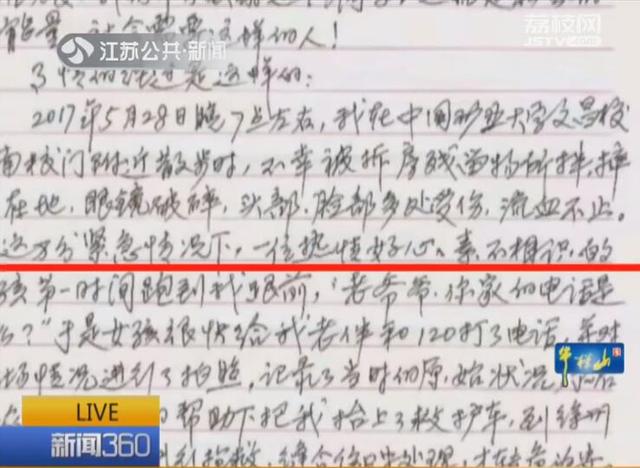 江苏公共·新闻
荔枝网
JSTV.COM
能量,社会需要这样的人!
事情的经过是这样的:
2017年5月28日晚7点左右,我在中国矿业大学文昌校
南校门附近散步时,不幸被拆房残留物所绊,摔
在地,眼镜破碎,头部、脸部多处受伤,流血不止。
这万分紧急情况下,一位热情好心、素不相识的
孩第一时间跑到我跟前,“老爷爷,你家的电话是
么?”于是女孩很快给我老伴和120打了电话,并对
场情况进行了拍照,记录了当时的原始状况,
的帮助下把我抬上了救护车,到徐州
LIVE
新闻360